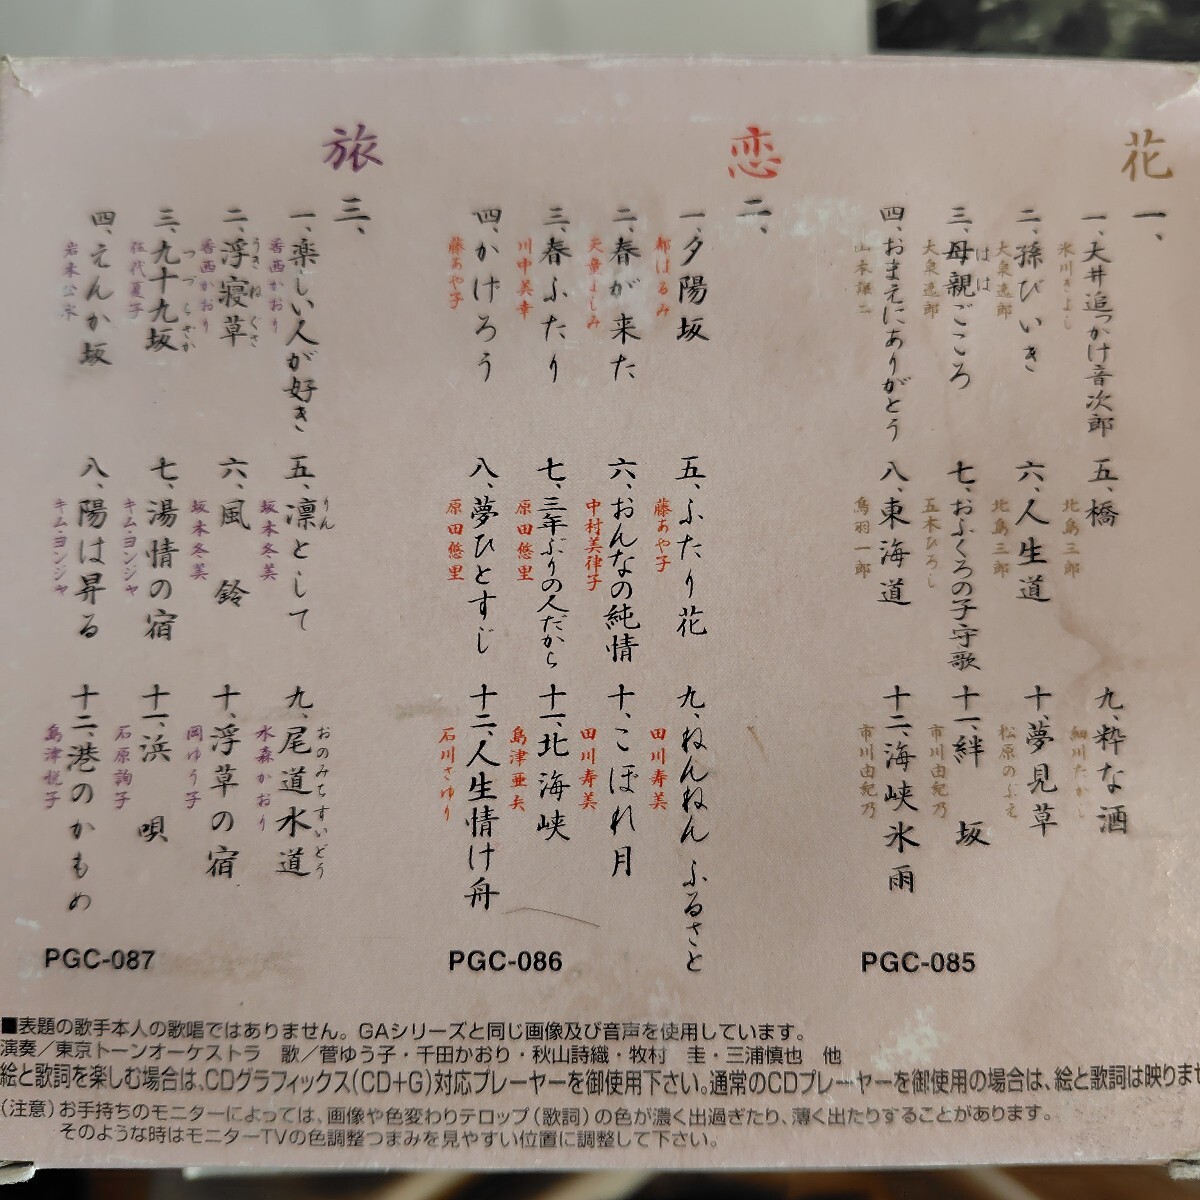 花
一、
一、大井追っかけ音次郎
氷川きよし
二、孫びいき
大泉逸郎
三、母親ごころ
はは
大泉逸郎
四、おまえにありがとう
山本譲二
五、橋
北島三郎
六、人生道
北島三郎
七、おふくろの子守歌
五木ひろし
八、東海道
鳥羽一郎
九、粋な酒
細川たかし
十、夢見草
松原のぶえ
十一、絆坂
市川由紀乃
十二、海峡氷雨
市川由紀乃
PGC-085
恋
二、
一、夕陽坂
都はるみ
二、春が来た
天童よしみ
三、春ふたり
川中美幸
四、かげろう
藤あや子
五、ふたり花
藤あや子
六、おんなの純情
中村美律子
七、三年ぶりの人だから
原田悠里
八、夢ひとすじ
原田悠里
九、ねんねんふるさと
田川寿美
十、こぼれ月
田川寿美
十一、北海峡
島津亜矢
十二、人生情け舟
石川さゆり
PGC-086
旅
三、
一、楽しい人が好き
香西かおり
二、浮寝草
うきねぐさ
香西かおり
三、九十九坂
つづらざか
伍代夏子
四、えんか坂
岩本公水
五、凛として
りん
坂本冬美
六、風鈴
坂本冬美
七、湯情の宿
キム・ヨンジャ
八、陽は昇る
キム・ヨンジャ
九、尾道水道
おのみちすいどう
水森かおり
十、浮草の宿
岡ゆう子
十一、浜唄
石原詢子
十二、港のかもめ
島津悦子
PGC-087
■表題の歌手本人の歌唱ではありません。GAシリーズと同じ画像及び音声を使用しています。
演奏／東京トーンオーケストラ　歌／菅ゆう子・千田かおり・秋山詩織・牧村　圭・三浦慎也　他
絵と歌詞を楽しむ場合は、CDグラフィックス(CD+G)対応プレーヤーを御使用下さい。通常のCDプレーヤーを御使用の場合は、絵と歌詞は映りませ
(注意)お手持ちのモニターによっては、画像や色変わりテロップ(歌詞)の色が濃く出過ぎたり、薄く出たりすることがあります。
そのような時はモニターTVの色調整つまみを見やすい位置に調整して下さい。